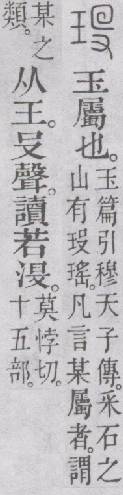 𤣻 玉屬也。
玉篇引穆天子傳。采石之
山有𤣻瑤。凡言某屬者。謂
某之
類。
从王。𠬛聲。讀若沒。
莫悖切。
十五部。